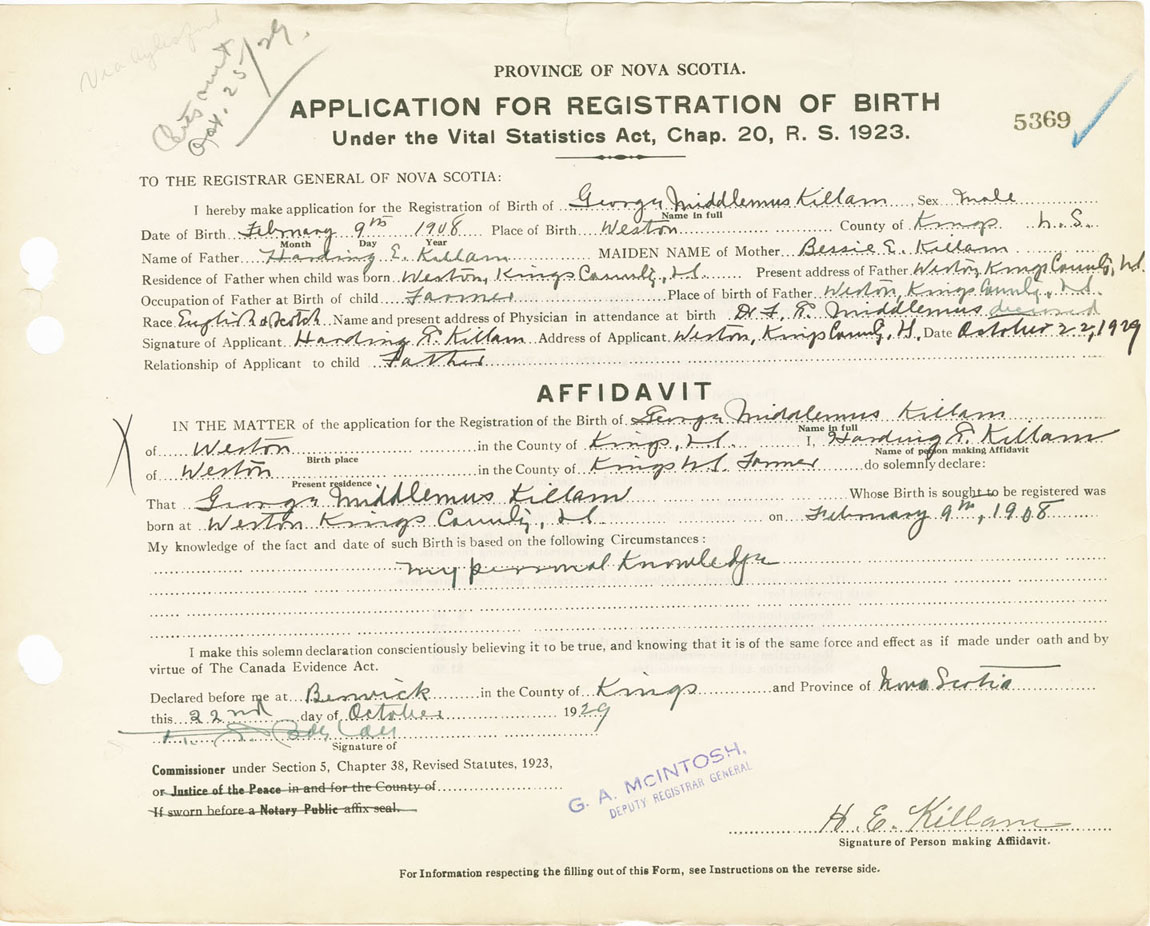 Via Aylesford
Certs out
Oct. 25/29.
PROVINCE OF NOVA SCOTIA.
APPLICATION FOR REGISTRATION OF BIRTH
Under the Vital Statistics Act, Chap. 20, R. S. 1923.
5369
TO THE REGISTRAR GENERAL OF NOVA SCOTIA:
I hereby make application for the Registration of Birth of George Middlemus Killam Sex Male
Name in full
Date of Birth February 9th 1908 Place of Birth Weston County of Kings N.S.
Month Day Year
Name of Father Harding E. Killam MAIDEN NAME of Mother Bessie E. Killam
Residence of Father when child was born Weston, Kings County, N.S. Present address of Father Weston, Kings County, N.S.
Occupation of Father at Birth of child Farmer Place of birth of Father Weston, Kings County, N.S.
Race English & Scotch Name and present address of Physician in attendance at birth Dr. F. Middlemus deceased
Signature of Applicant Harding E. Killam Address of Applicant Weston, Kings County, N.S., Date October 22, 1929
Relationship of Applicant to child Father
AFFIDAVIT
IN THE MATTER of the application for the Registration of the Birth of George Middlemus Killam
Name in full
of Weston in the County of Kings, N.S. I, Harding E. Killam
Birth place Name of person making Affidavit
of Weston in the County of Kings N.S. Farmer do solemnly declare:
Present residence
That George Middlemus Killam Whose Birth is sought to be registered was
born at Weston Kings County, N.S. on February 9th, 1908
My knowledge of the fact and date of such Birth is based on the following Circumstances:
my personal Knowledge
I make this solemn declaration conscientiously believing it to be true, and knowing that it is of the same force and effect as if made under oath and by
virtue of The Canada Evidence Act.
Declared before me at Berwick in the County of Kings and Province of Nova Scotia
this 22nd day of October 1929
Signature of
Commissioner under Section 5, Chapter 38, Revised Statutes, 1923,
or Justice of the Peace in and for the County of
If sworn before a Notary Public affix seal.
G. A. McINTOSH,
DEPUTY REGISTRAR GENERAL
H. E. Killam
Signature of Person making Affidavit.
For Information respecting the filling out of this Form, see Instructions on the reverse side.